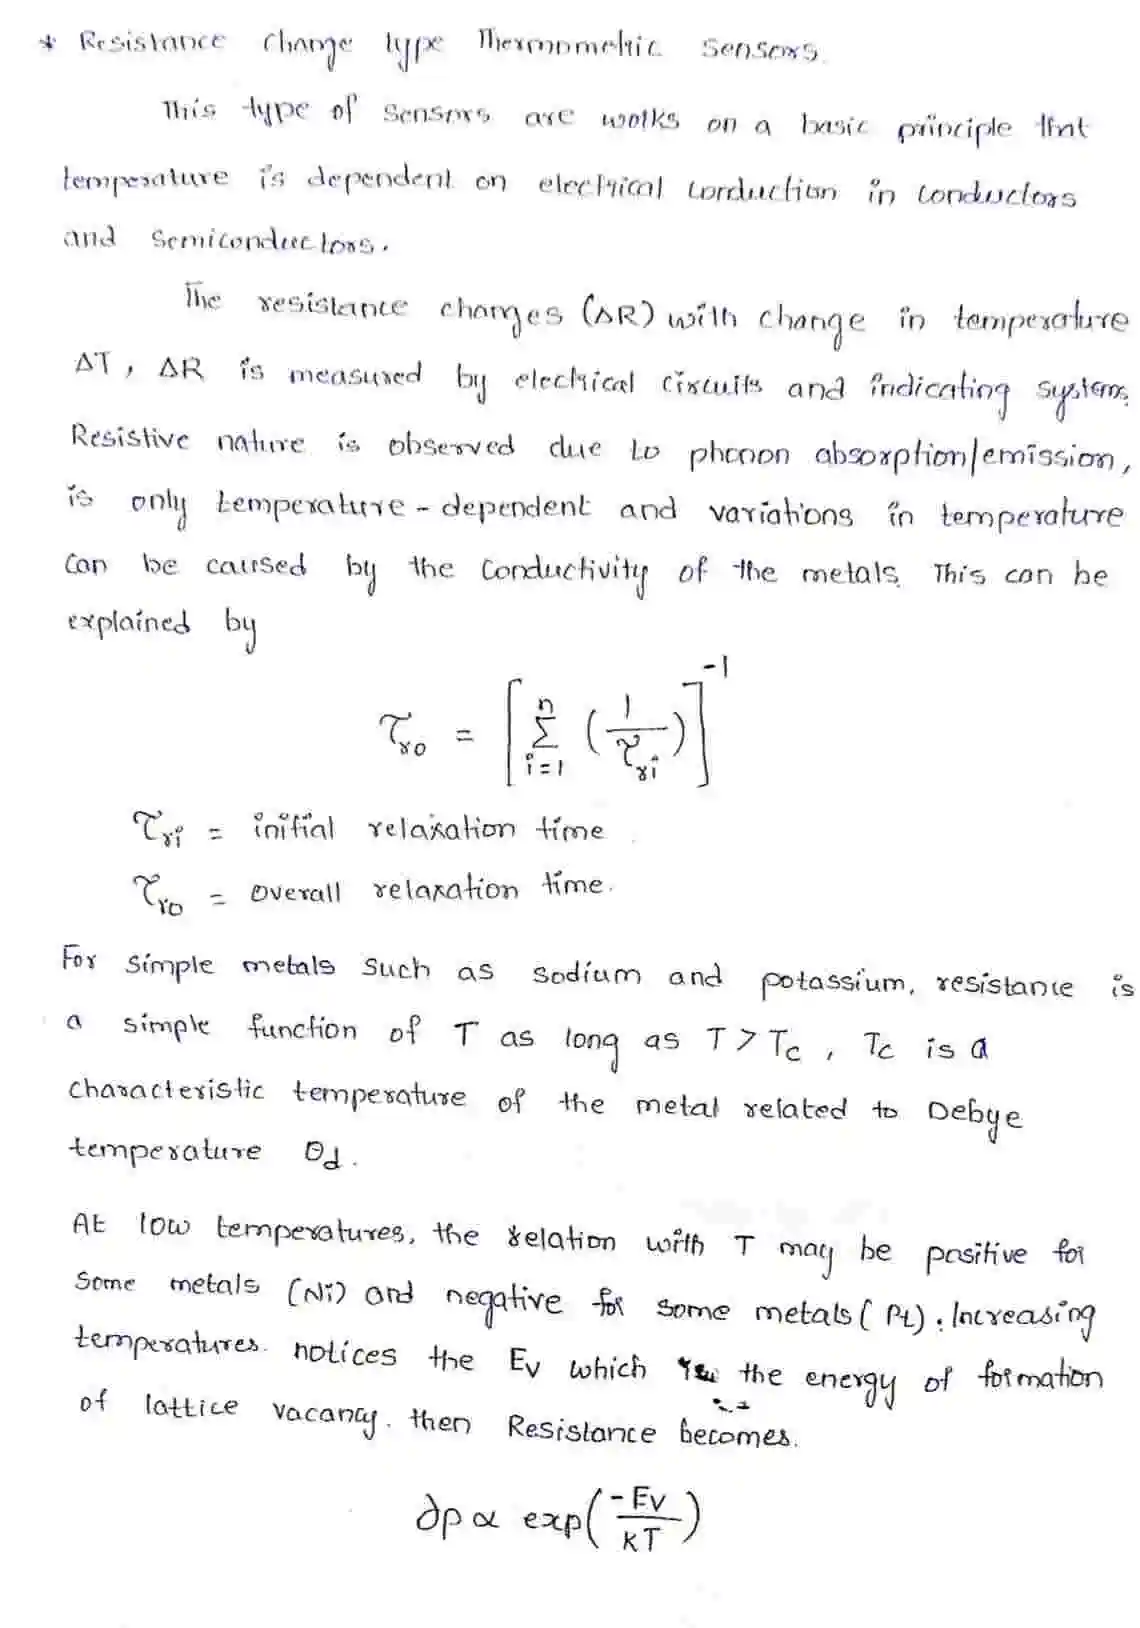 * Resistance change type Thermometric sensors.
This type of sensors are works on a basic principle that
temperature is dependent on electrical conduction in conductors
and semiconductors.
The resistance changes (ΔR) with change in temperature
ΔT, ΔR is measured by electrical circuits and indicating systems.
Resistive nature is observed due to phonon absorption/emission,
is only temperature-dependent and variations in temperature
can be caused by the conductivity of the metals. This can be
explained by
τ_ro = [ Σ_{i=1}^{n} (1/τ_ri) ]^-1
τ_ri = initial relaxation time
τ_ro = overall relaxation time.
For simple metals such as sodium and potassium, resistance is
a simple function of T as long as T > Tc, Tc is a
characteristic temperature of the metal related to Debye
temperature θd.
At low temperatures, the relation with T may be positive for
some metals (Ni) and negative for some metals (Pt). Increasing
temperatures. notices the Ev which the energy of formation
of lattice vacancy. then Resistance becomes.
∂ρ ∝ exp(-Ev/kT)